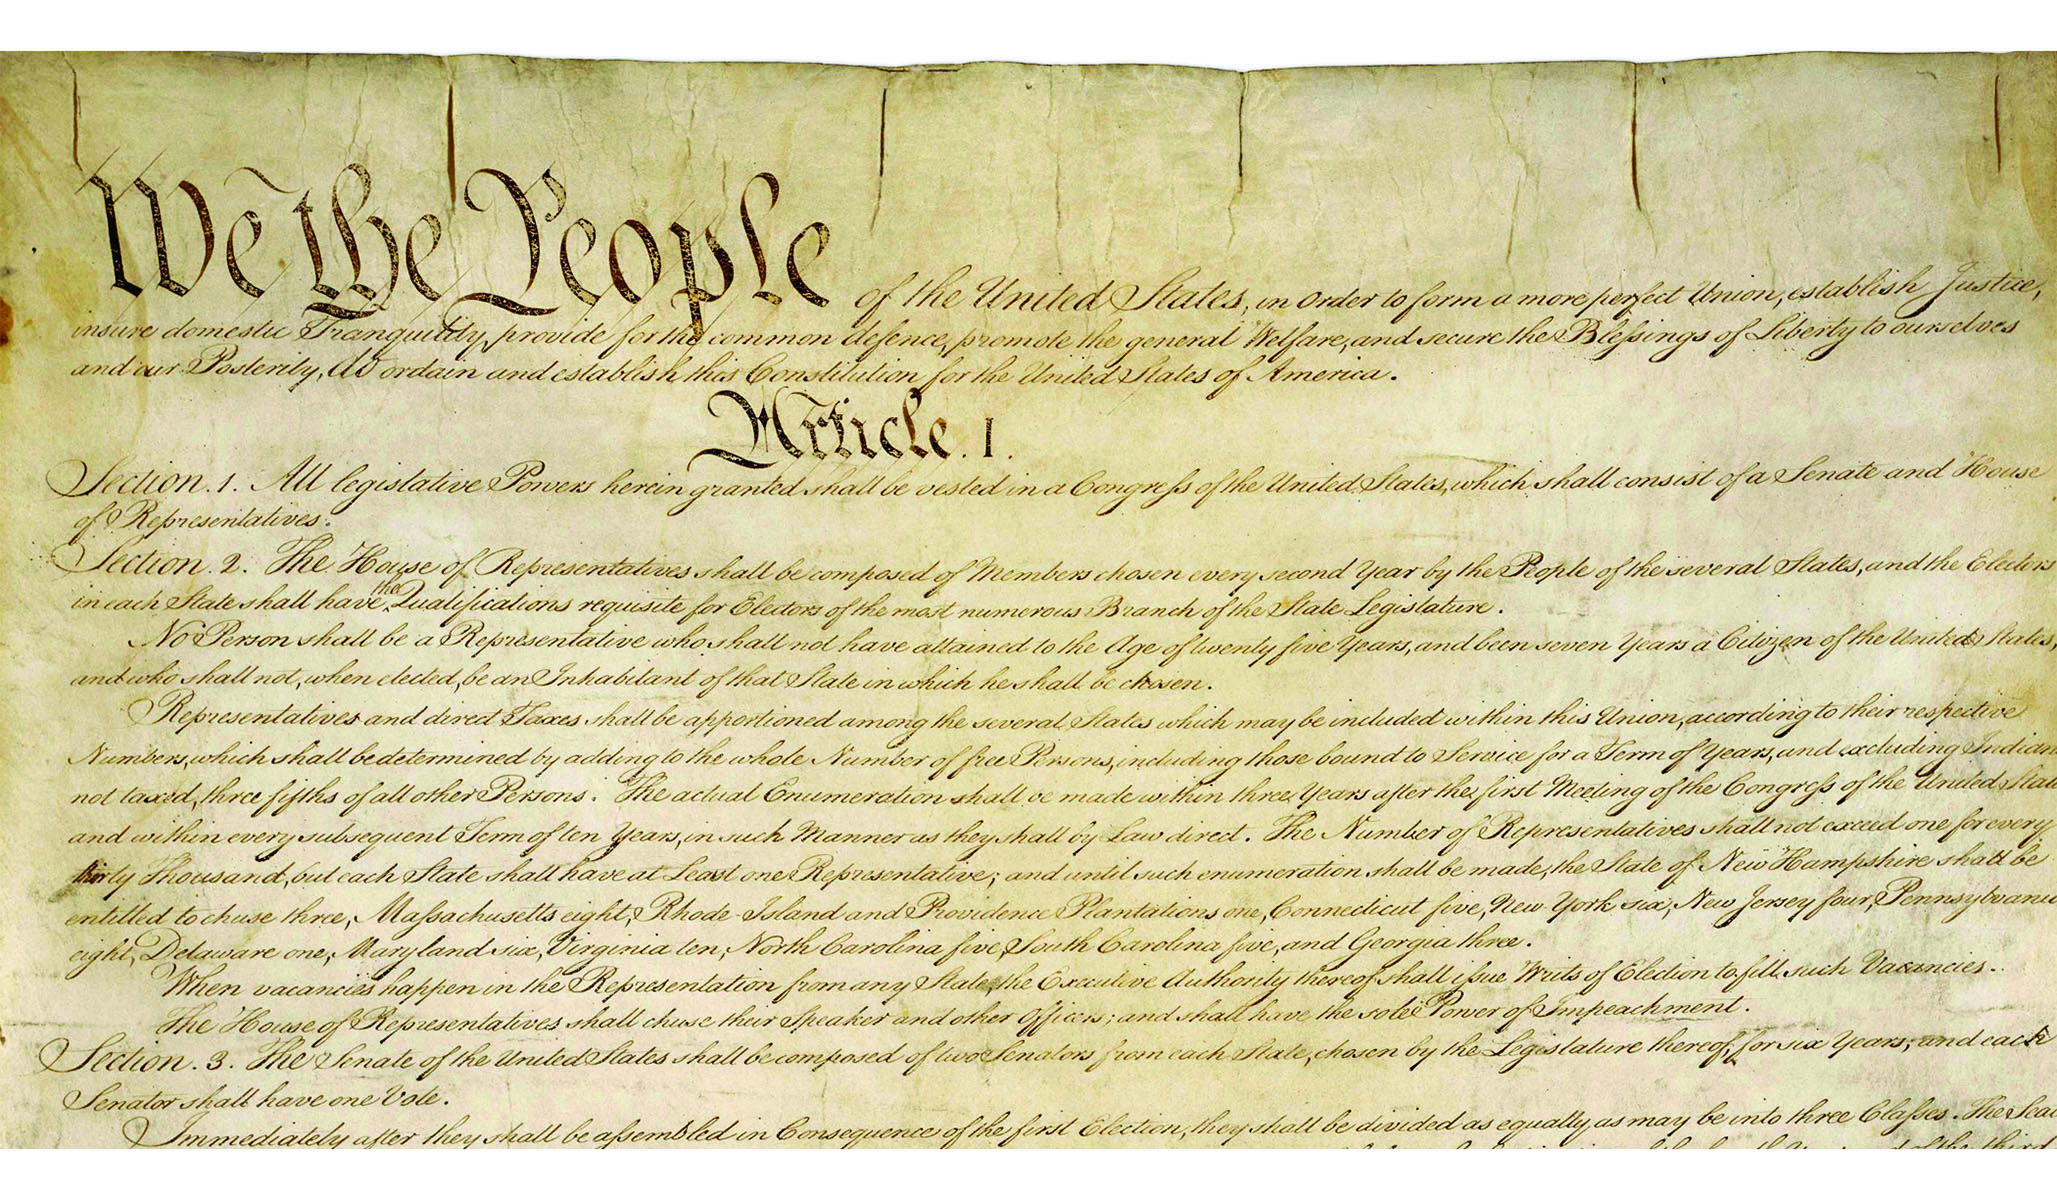 We the People of the United States, in Order to form a more perfect Union, establish Justice,
insure domestic Tranquility, provide for the common defence, promote the general Welfare, and secure the Blessings of Liberty to ourselves
and our Posterity, do ordain and establish this Constitution for the United States of America.
Article. I.
Section. 1. All legislative Powers herein granted shall be vested in a Congress of the United States, which shall consist of a Senate and House
of Representatives.
Section. 2. The House of Representatives shall be composed of Members chosen every second Year by the People of the several States, and the Electors
in each State shall have the Qualifications requisite for Electors of the most numerous Branch of the State Legislature.
No Person shall be a Representative who shall not have attained to the Age of twenty five Years, and been seven Years a Citizen of the United States,
and who shall not, when elected, be an Inhabitant of that State in which he shall be chosen.
Representatives and direct Taxes shall be apportioned among the several States which may be included within this Union, according to their respective
Numbers, which shall be determined by adding to the whole Number of free Persons, including those bound to Service for a Term of Years, and excluding Indians
not taxed, three fifths of all other Persons. The actual Enumeration shall be made within three Years after the first Meeting of the Congress of the United State
and within every subsequent Term of ten Years, in such Manner as they shall by Law direct. The Number of Representatives shall not exceed one for every
thirty Thousand, but each State shall have at Least one Representative; and until such enumeration shall be made, the State of New Hampshire shall be
entitled to chuse three, Massachusetts eight, Rhode-Island and Providence Plantations one, Connecticut five, New-York six, New Jersey four, Pennsylvania
eight, Delaware one, Maryland six, Virginia ten, North Carolina five, South Carolina five, and Georgia three.
When vacancies happen in the Representation from any State, the Executive Authority thereof shall issue Writs of Election to fill such Vacancies.
The House of Representatives shall chuse their Speaker and other Officers; and shall have the sole Power of Impeachment.
Section. 3. The Senate of the United States shall be composed of two Senators from each State, chosen by the Legislature thereof, for six Years; and each
Senator shall have one Vote.
Immediately after they shall be assembled in Consequence of the first Election, they shall be divided as equally as may be into three Classes. The Sea